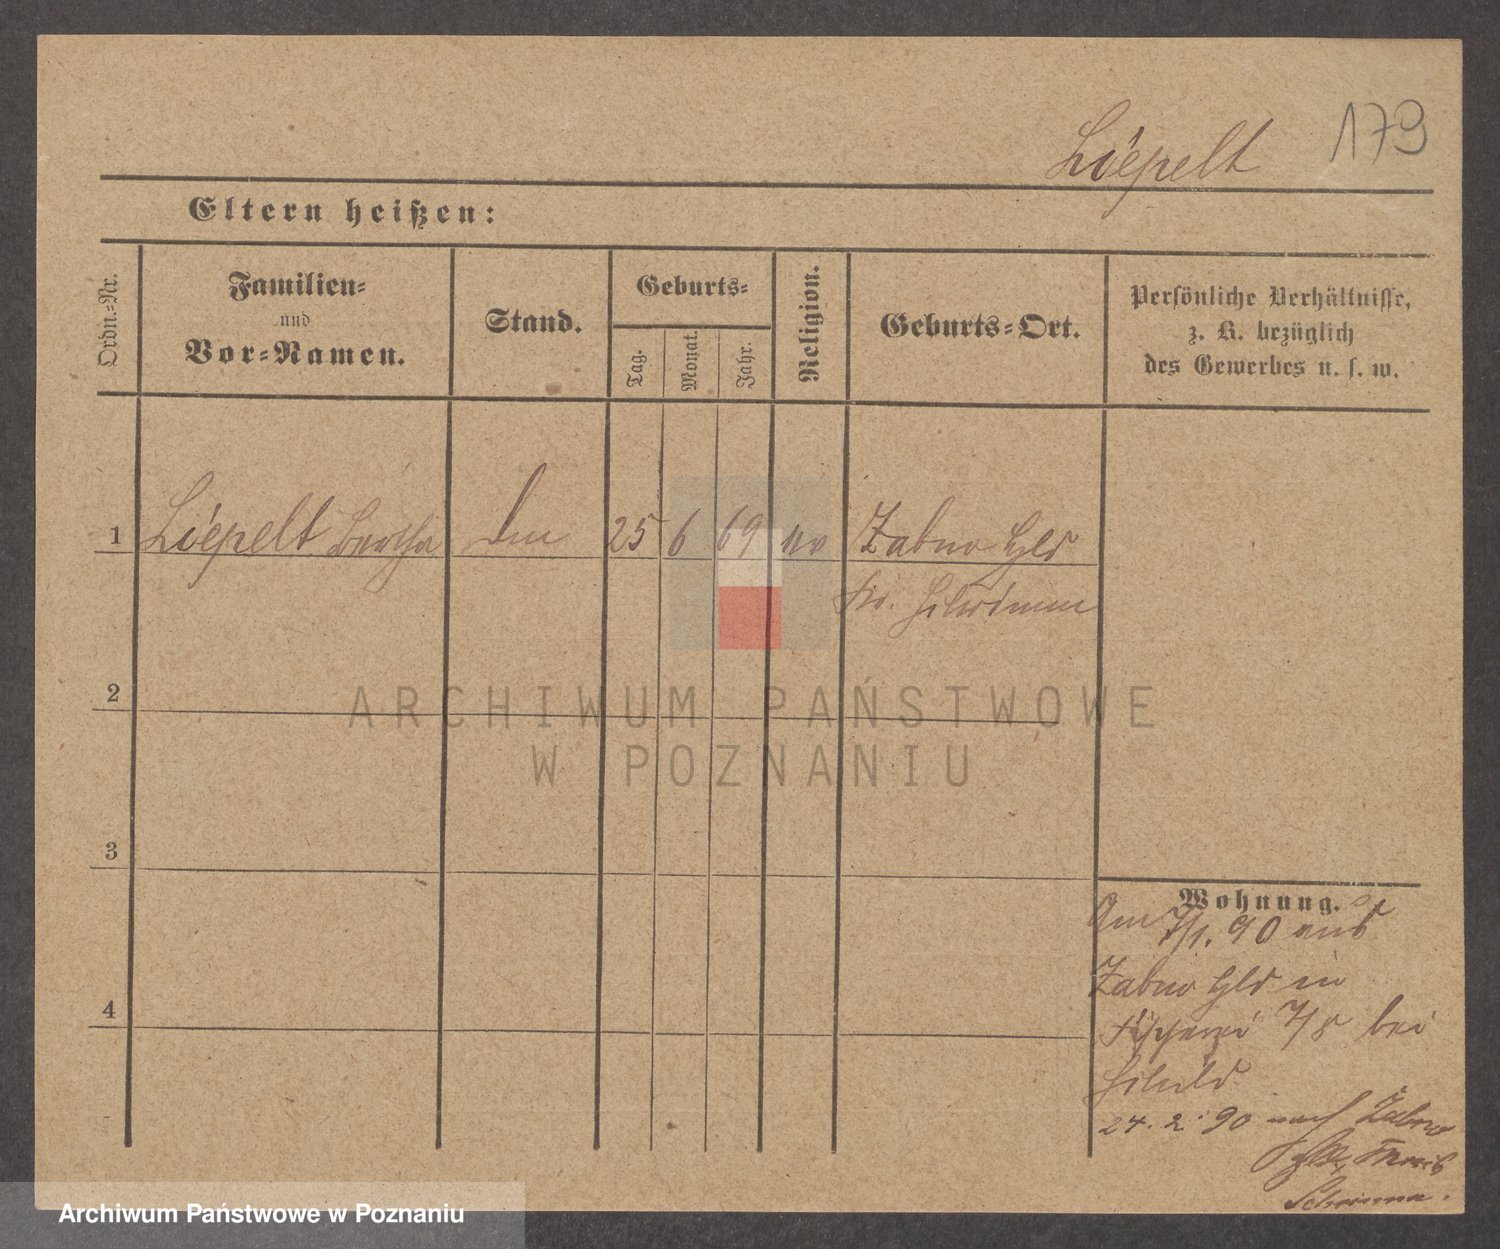 179
Liepelt
Eltern heißen:
Ordn.-Nr.
Familien-
und
Vor-Namen.
Stand.
Geburts-
Tag.
Monat.
Jahr.
Religion.
Geburts-Ort.
Persönliche Verhältnisse,
z. B. bezüglich
des Gewerbes u. s. w.
1
Liepelt Bertha
25
6
69
ev
Zabno Gld
Kr.
2
ARCHIWUM PAŃSTWOWE
W POZNANIU
3
Wohnung.
Am 7/1. 90 aus
Zabno Gld in
Fischerei 7/8 bei
4
24. 2. 90 nach Zabno
Kreis
Schrimm.
Archiwum Państwowe w Poznaniu